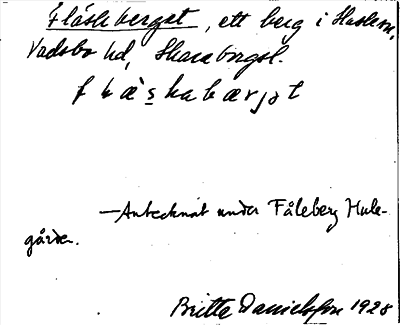 Fläskeberget, ett berg i Haslem,
Vadsbo hd, Skarab.l.
flä`skabærjət
—Antecknat under Fåleberg Hule-
gården.
Britta Danielsson 1928